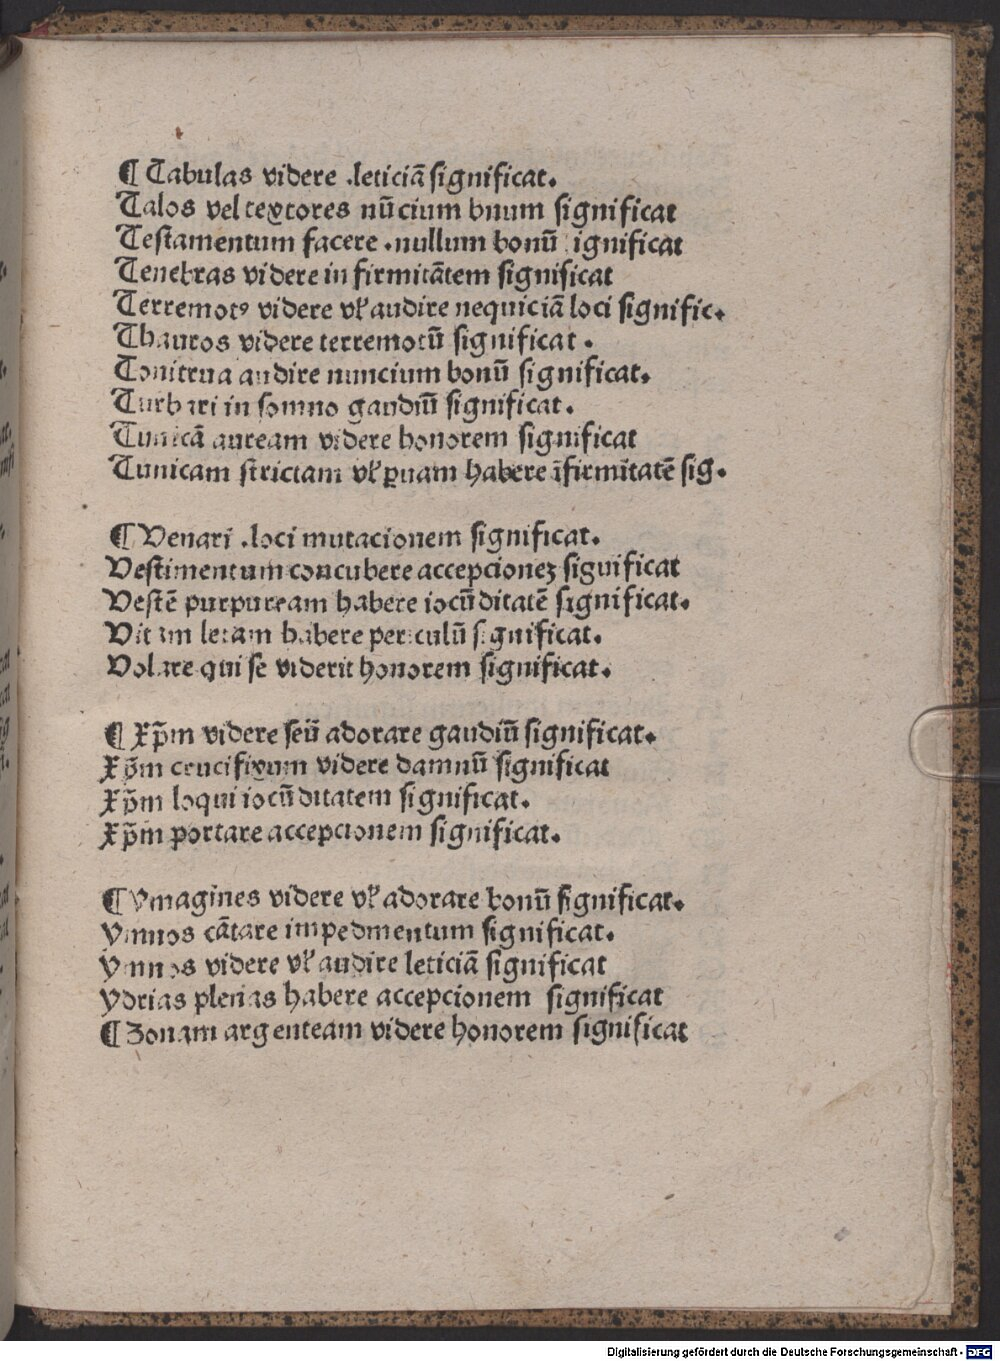 ¶ Tabulas videre .leticiā significat.
Talos vel textores nūcium bnum significat
Testamentum facere .nullum bonū ignificat
Tenebras videre in firmitātem significat
Terremotꝰ videre vl̕ audire nequiciā loci signific.
Thauros videre terremotū significat .
Tonitrua audire nuncium bonū significat.
Turbari in somno gaudiū significat.
Tunicā auream videre honorem significat
Tunicam strictam vl̕ ꝑuam habere īfirmitatē sig.
¶ Venari .loci mutacionem significat.
Vestimentum concubere accepcionez significat
Vestē purpuream habere iocūditatē significat.
Vitam letam habere periculū significat.
Volare qui se viderit honorem significat.
¶ Xp̄m videre seu adorare gaudiū significat.
Xp̄m crucifixum videre damnū significat
Xp̄m loqui iocūditatem significat.
Xp̄m portare accepcionem significat.
¶ Ymagines videre vl̕ adorare bonū significat.
Ymnos cātare impedmentum significat.
Ymnos videre vl̕ audire leticiā significat
Ydrias plenas habere accepcionem significat
¶ Zonam argenteam videre honorem significat
Digitalisierung gefördert durch die Deutsche Forschungsgemeinschaft - DFG